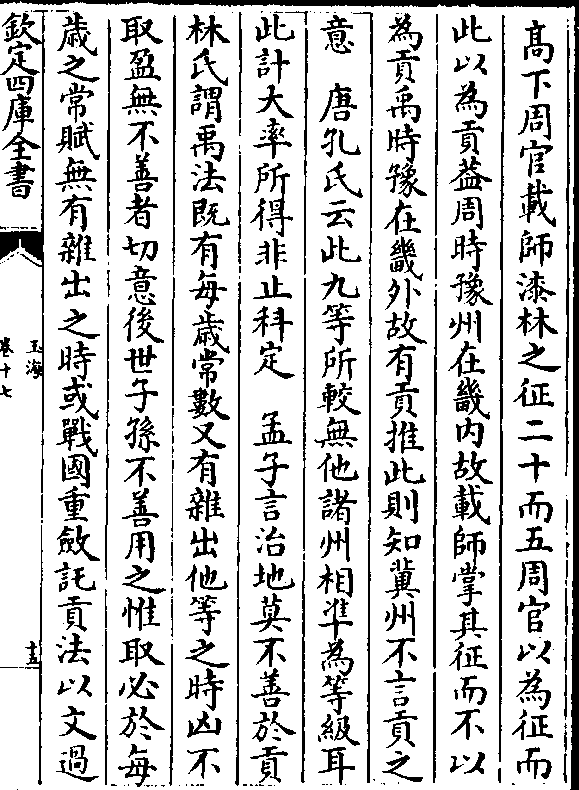 髙下周官載師漆林之征二十而五周官以為征而
此以為貢葢周時豫州在畿内故載師掌其征而不以
為貢禹時豫在畿外故有貢推此則知冀州不言貢之
意　唐孔氏云此九等所較無他諸州相凖為等級耳
此計大率所得非止科定　孟子言治地莫不善於貢
林氏謂禹法既有每歳常數又有雜出他等之時凶不
取盈無不善者切意後世子孫不善用之惟取必於每
歳之常賦無有雜出之時或戰國重斂託貢法以文過
欽定四庫全書
玉海
卷十七